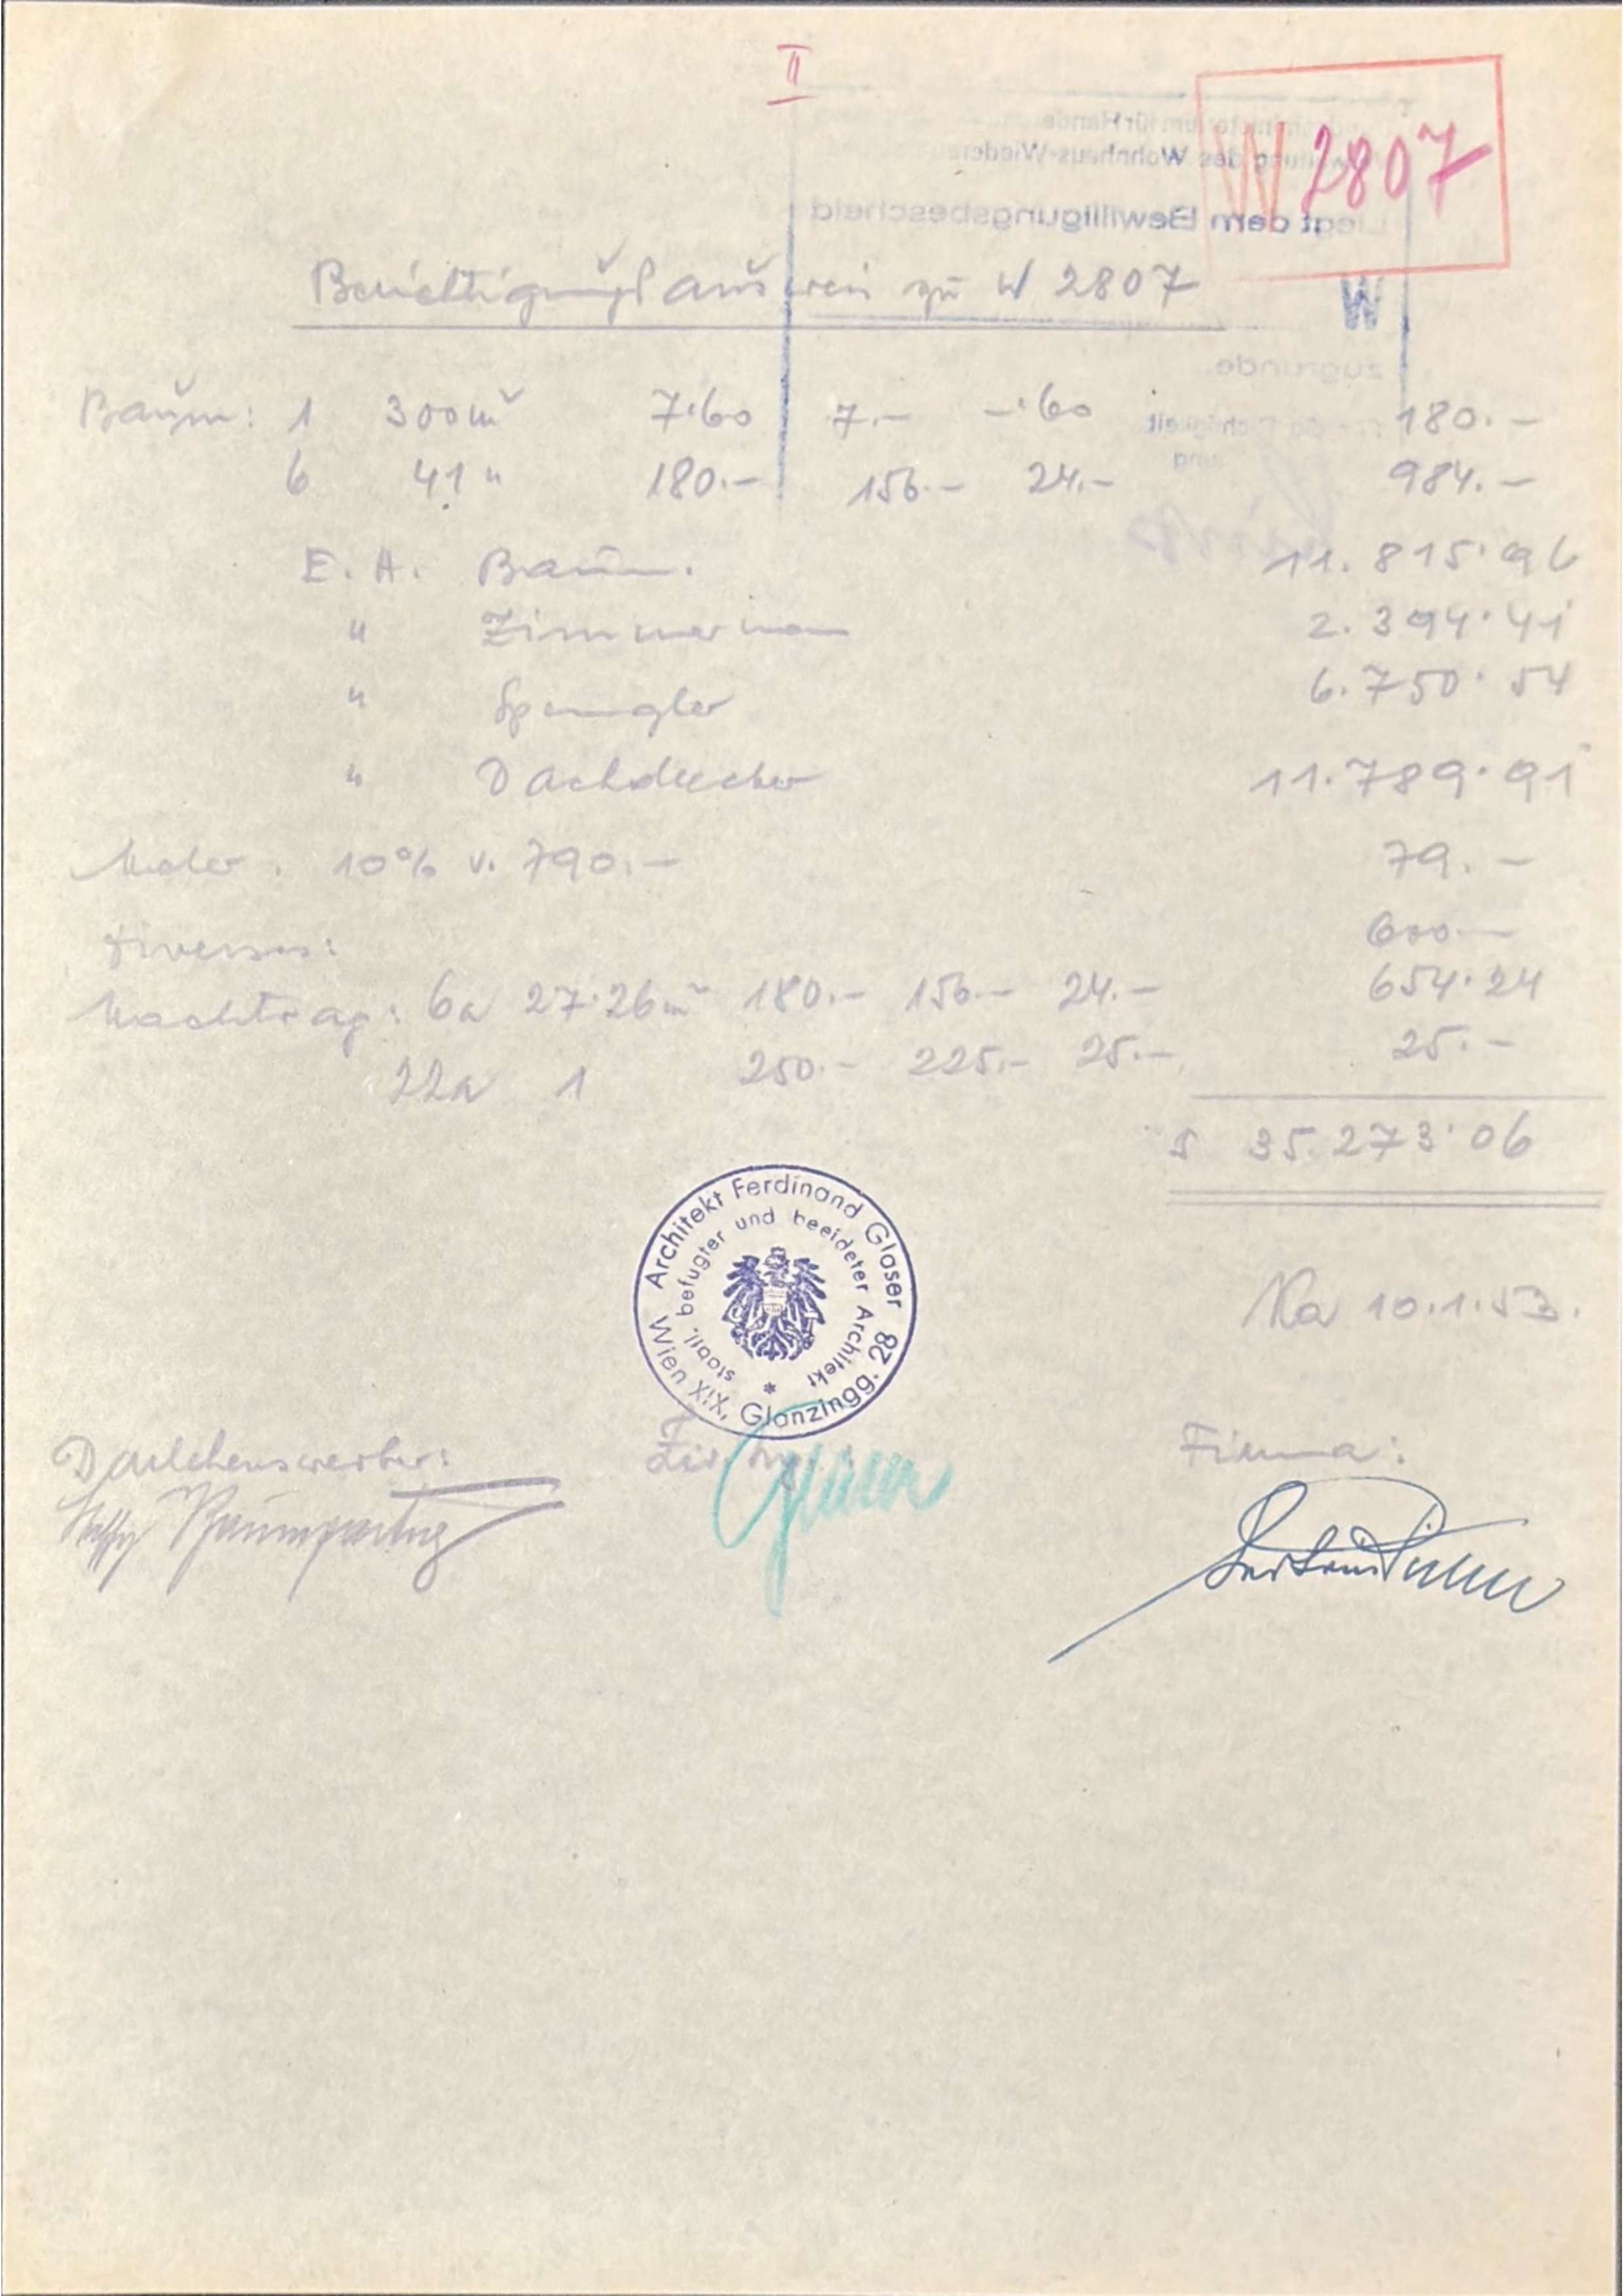 II
W 2807
Berichtigungsausweis zu W 2807
W
Baum: 1 300 m² 7·60 7.– –·60 180.–
6 41 " 180.– 156.– 24.– 984.–
E. A. Baum. 11.815·96
" Zimmermann 2.394·41
" Spengler 6.750·54
" Dachdecker 11.789·91
Maler. 10% v. 790.– 79.–
Diverses: 600.–
Nachtrag: 6a 27·26 m² 180.– 156.– 24.– 654·24
22a 1 250.– 225.– 25.– 25.–
S 35.273·06
Architekt Ferdinand Glaser
staatl. befugter und beeideter Architekt
Wien XIX, Glanzingg. 28
Ka 10.1.53.
Darlehenswerber: Ziv. Ing.: Firma:
Baumgartner Glaser